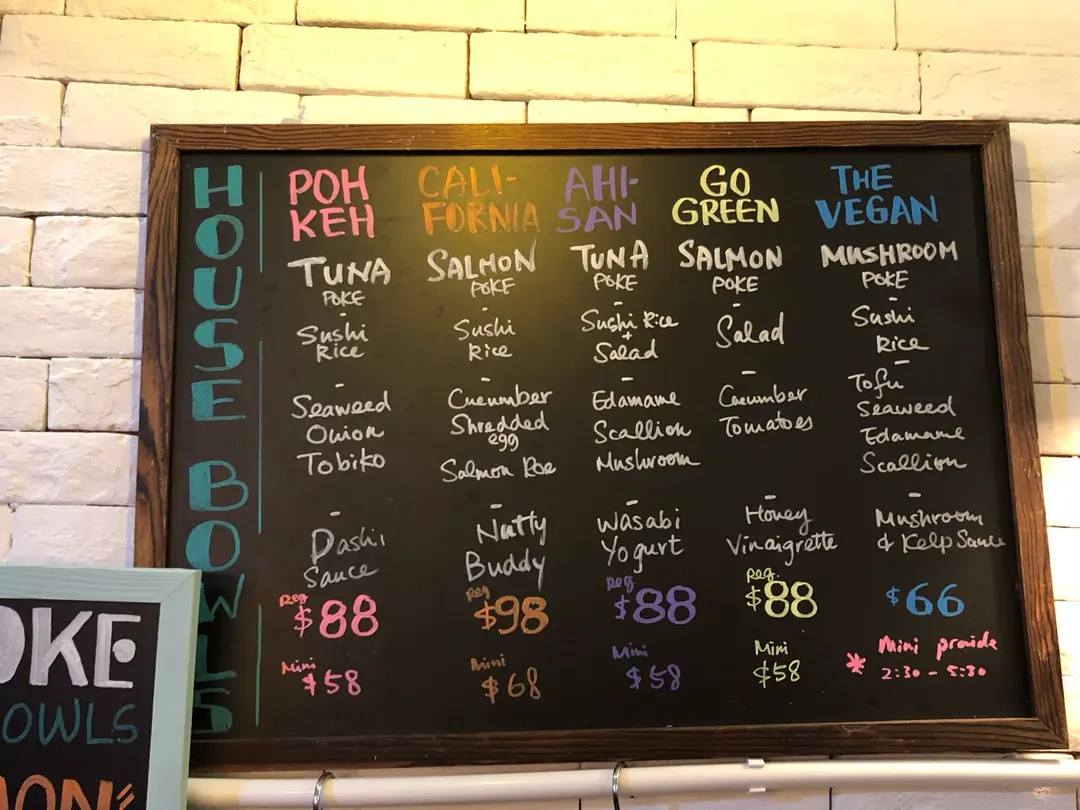 HOUSE BOWLS
POH
KEH
TUNA
POKE
-
Sushi
Rice
-
Seaweed
Onion
Tobiko
-
Dashi
Sauce
Reg
$88
Mini
$58
CALI-
FORNIA
SALMON
POKE
-
Sushi
Rice
-
Cucumber
Shredded
egg
Salmon Roe
-
Nutty
Buddy
Reg
$98
Mini
$68
AHI-
SAN
TUNA
POKE
-
Sushi Rice
+
Salad
-
Edamame
Scallion
Mushroom
-
Wasabi
Yogurt
Reg.
$88
Mini
$58
GO
GREEN
SALMON
POKE
-
Salad
-
Cucumber
Tomatoes
-
Honey
Vinaigrette
Reg.
$88
Mini
$58
THE
VEGAN
MUSHROOM
POKE
-
Sushi
Rice
-
Tofu
Seaweed
Edamame
Scallion
-
Mushroom
& Kelp Sauce
$66
* Mini provide
2:30 - 5:30
OKE
OWLS